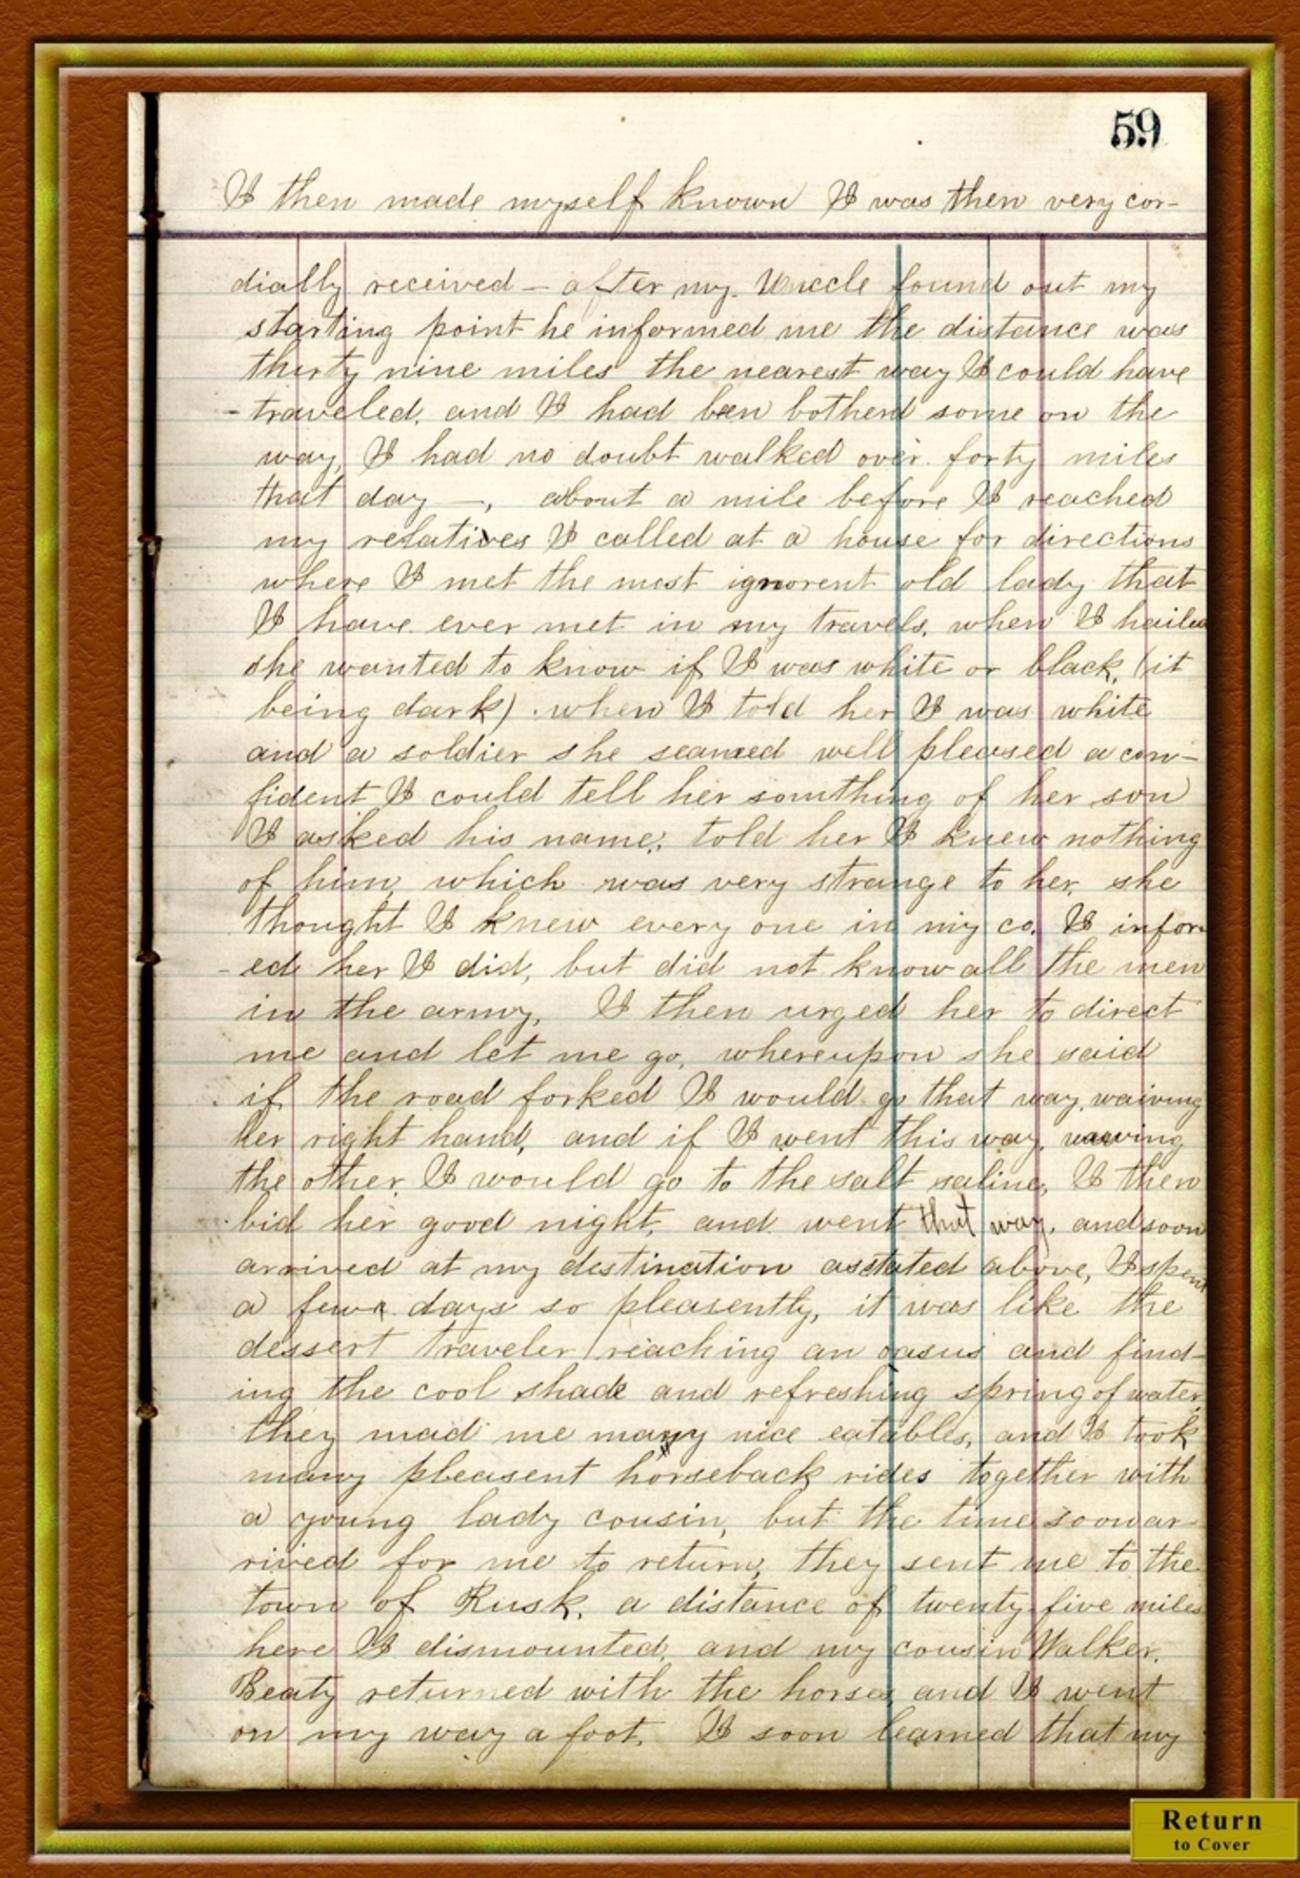 59
I then made myself known I was then very cor-
dially received - after my Unccle found out my
starting point he informed me the distance was
thirty nine miles the nearest way I could have
- traveled, and I had been botherd some on the
way, I had no doubt walked over forty miles
that day -, about a mile before I reached
my relatives I called at a house for directions
where I met the most ignorent old lady that
I have ever met in my travels, when I hailed
she wanted to know if I was white or black, (it
being dark) when I told her I was white
and a soldier she seamed well pleased a con-
fident I could tell her somthing of her son
I asked his name, told her I knew nothing
of him, which was very strange to her, she
thought I knew every one in my co. I infor-
-ed her I did, but did not know all the men
in the army, I then urged her to direct
me and let me go, whereupon she said
if the road forked I would go that way, waiving
her right hand, and if I went this way, waving
the other, I would go to the salt saline, I then
bid her good night, and went that way, and soon
arrived at my destination asstated above, I spent
a few days so pleasently, it was like the
dessert traveler reaching an oasus and find-
ing the cool shade and refreshing spring of water,
they mad me many nice eatables, and I took
many pleasent horseback rides together with
a young lady cousin, but the time soon ar-
rived for me to return, they sent me to the
town of Rusk, a distance of twenty five miles
here I dismounted, and my cousin Walker
Beaty returned with the horses and I went
on my way a foot. I soon learned that my
Return
to Cover